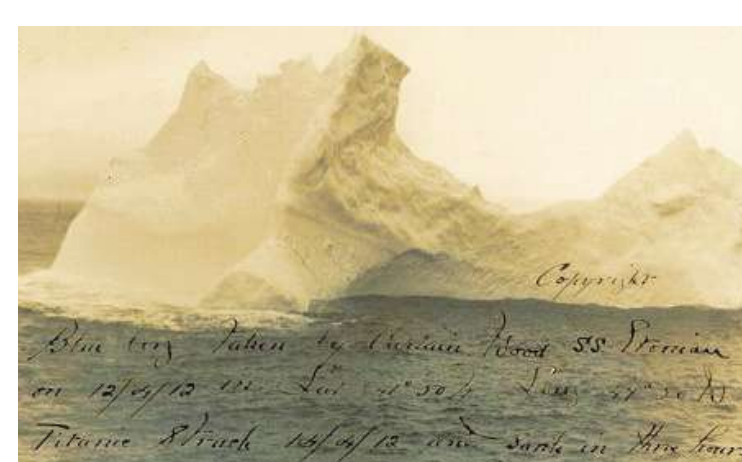 Copyright
Blue berg taken by Captain Wood S.S. Etonian
on 12/4/12 in Lat 41° 50 N Long 49° 50 W
Titanic Struck 14/4/12 and sank in three hours